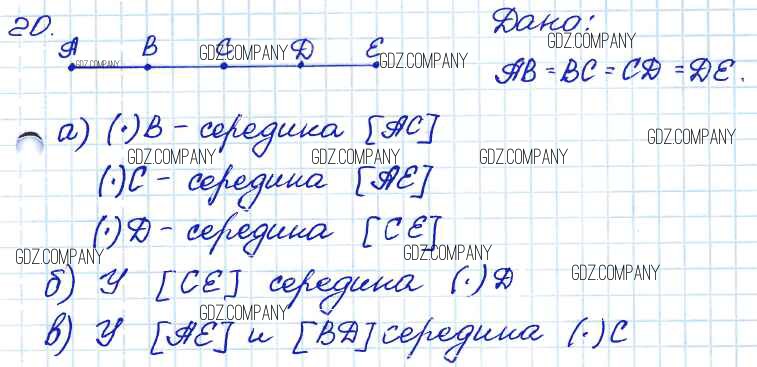 20.
Дано:
A B C D E
AB = BC = CD = DE.
а) (·)B - середина [AC]
(·)C - середина [AE]
(·)D - середина [CE]
б) У [CE] середина (·)D
в) У [AE] и [BD] середина (·)C
GDZ.COMPANY
GDZ.COMPANY
GDZ.COMPANY
GDZ.COMPANY
GDZ.COMPANY
GDZ.COMPANY
GDZ.COMPANY
GDZ.COMPANY
GDZ.COMPANY
GDZ.COMPANY
GDZ.COMPANY
GDZ.COMPANY